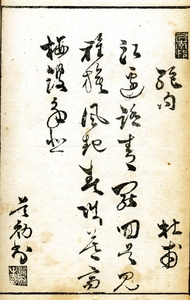 絶句
杜甫
江邊踏青罷回首見
旌旗風起春城暮高
樓鼓角悲